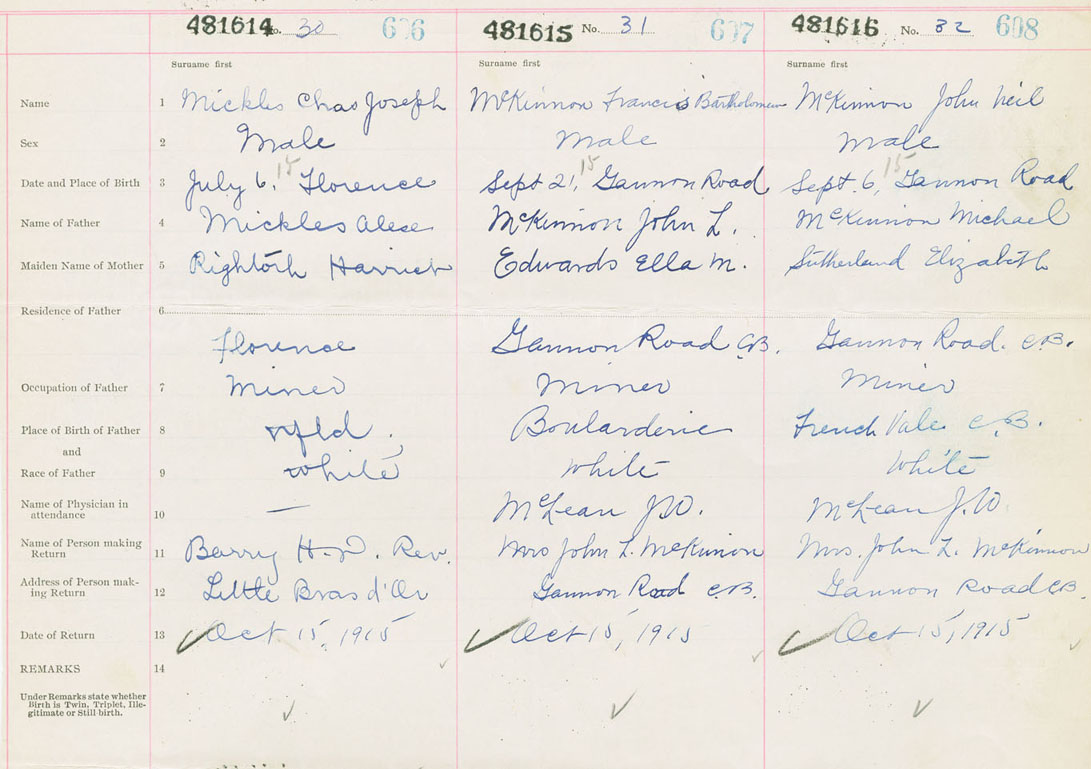 481614 No. 30 606 481615 No. 31 607 481616 No. 32 608
Surname first Surname first Surname first
Name 1 Mickles Chas Joseph McKinnon Francis Bartholomew McKinnon John Neil
Sex 2 Male Male Male
Date and Place of Birth 3 July 6, 15 Florence Sept 21, 15 Gannon Road Sept. 6, 15 Gannon Road
Name of Father 4 Mickles McKinnon John L. McKinnon Michael
Maiden Name of Mother 5 Harriet Edwards Ella M. Sutherland Elizabeth
Residence of Father 6
Florence Gannon Road C.B. Gannon Road. C.B.
Occupation of Father 7 Miner Miner Miner
Place of Birth of Father 8 Nfld. Boularderie French Vale C.B.
and
Race of Father 9 White White White
Name of Physician in
attendance 10 — McLean J.W. McLean J.W.
Name of Person making
Return 11 Barry Rev. Mrs John L. McKinnon Mrs. John L. McKinnon
Address of Person mak-
ing Return 12 Little Bras d'Or Gannon Road C.B. Gannon Road C.B.
Date of Return 13 ✓ Oct 15, 1915 ✓ Oct 15, 1915 ✓ Oct 15, 1915
REMARKS 14
Under Remarks state whether
Birth is Twin, Triplet, Ille-
gitimate or Still birth. ✓ ✓ ✓